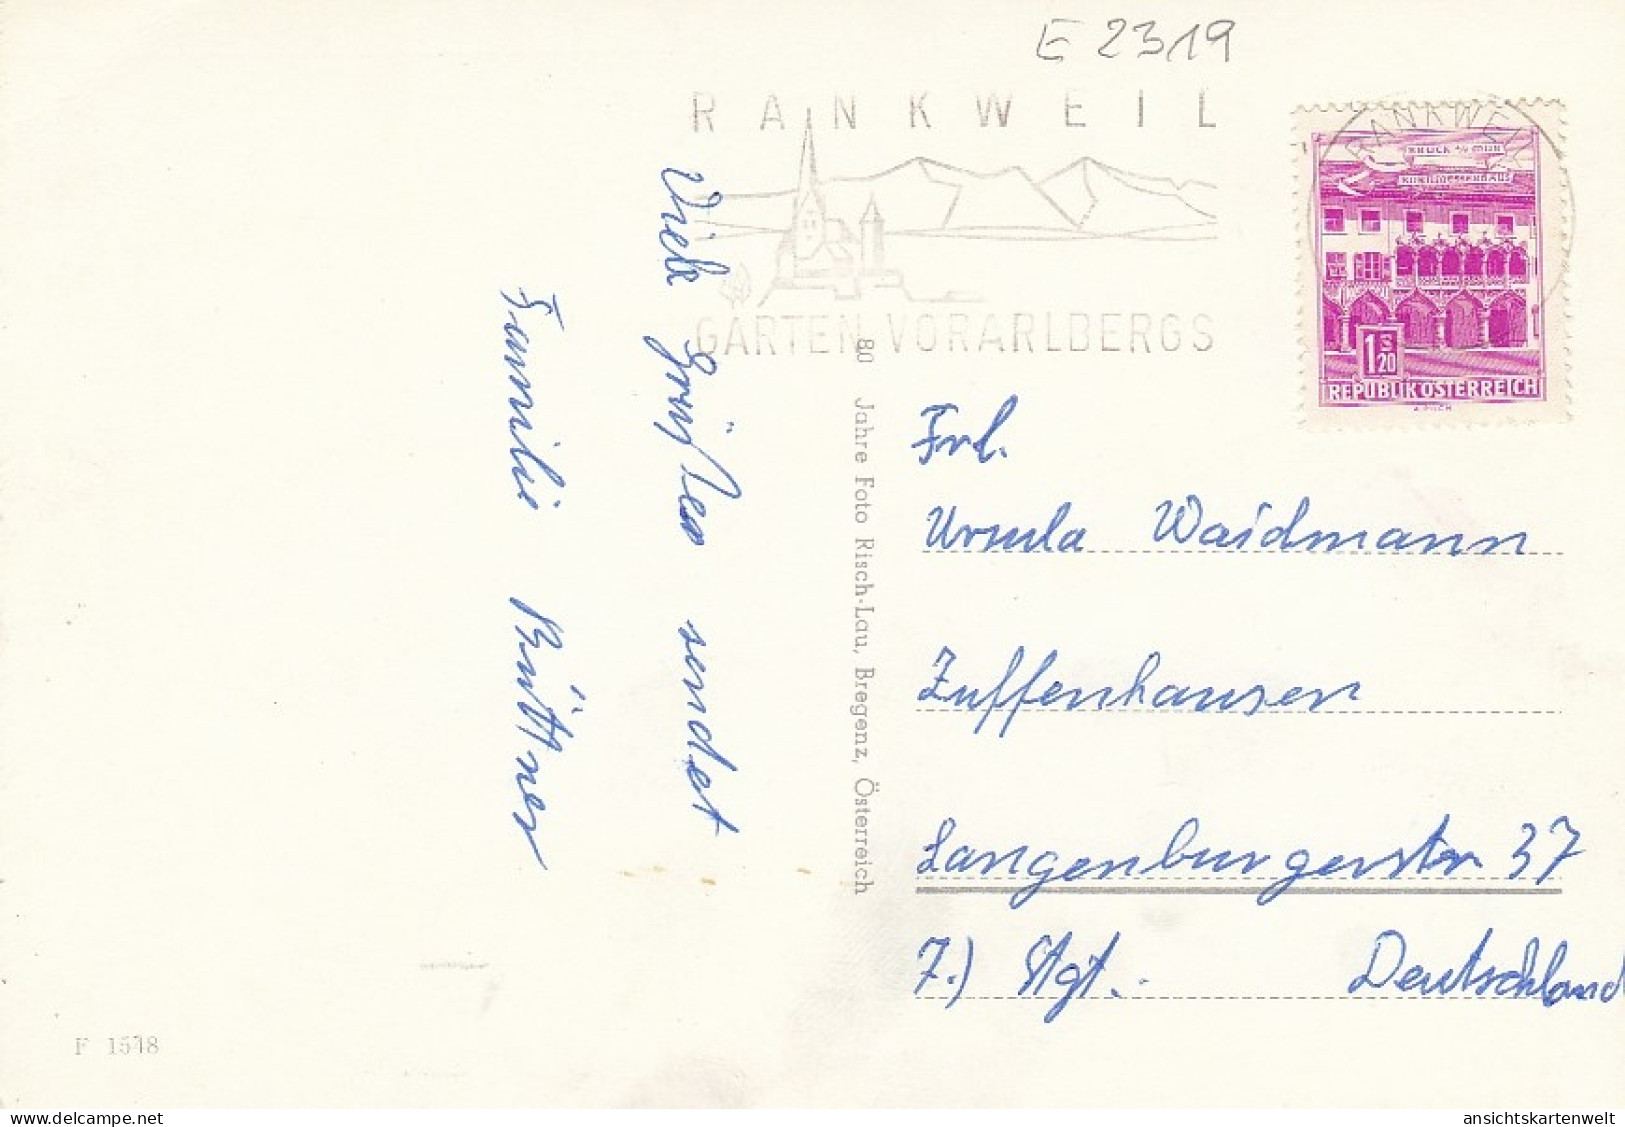 E 2319
RANKWEIL
GARTEN VORARLBERGS
RANKWEIL
BRUCK a/d MUR
KORNMESSERHAUS
1 S 20
REPUBLIK ÖSTERREICH
A. PILCH
Viele Grüße sendet
Familie Büttner
80 Jahre Foto Risch-Lau, Bregenz, Österreich
Frl.
Ursula Waidmann
Zuffenhausen
Langenburgerstr 37
7.) Stgt.. Deutschland
F 1548
delcampe.net
ansichtskartenwelt